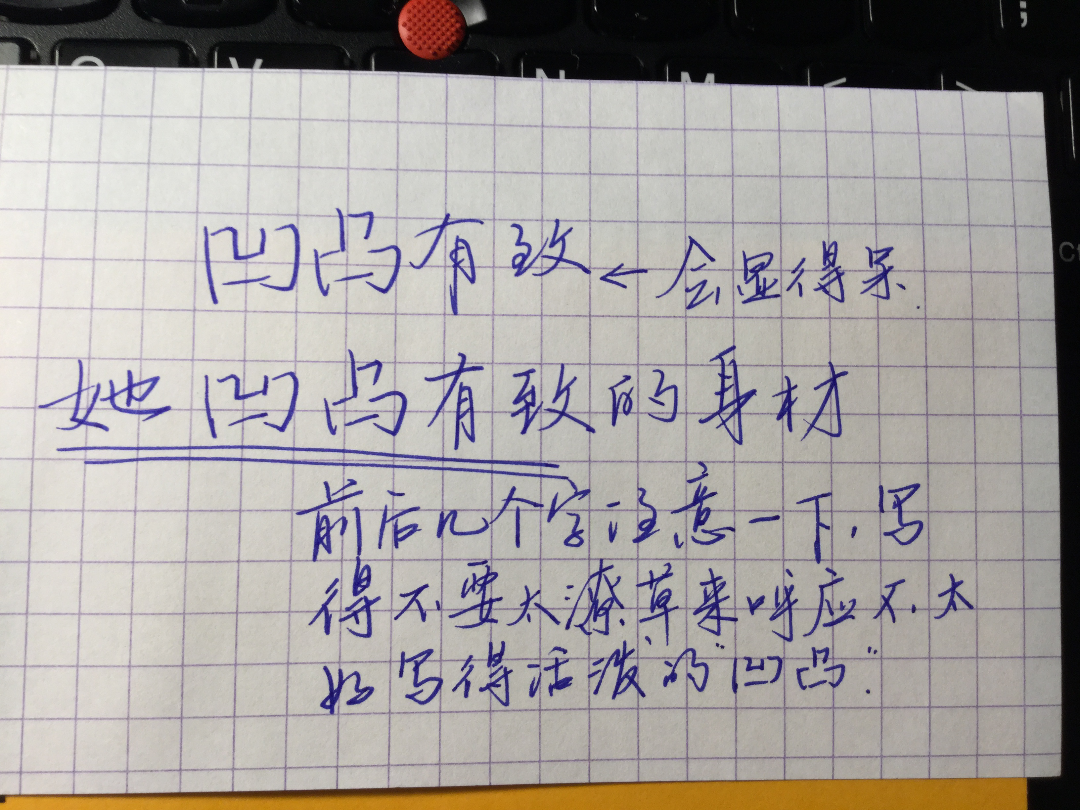 凹凸有致 ← 会显得呆.
她凹凸有致的身材
前后几个字注意一下,写
得不要太潦草来呼应不太
好写得活泼的"凹凸".